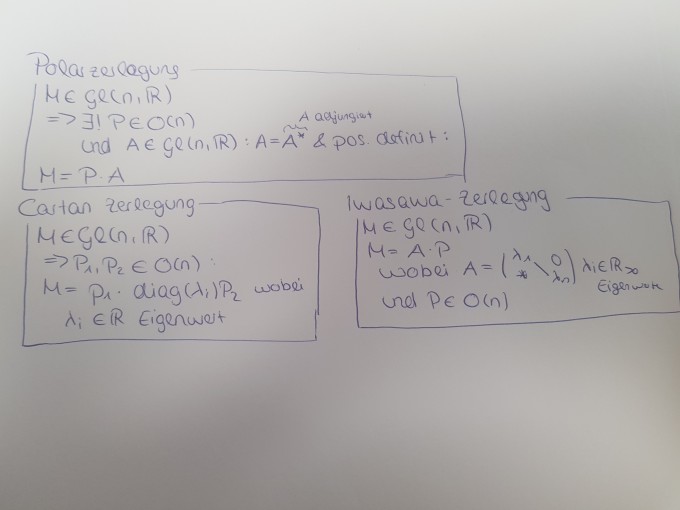 Polarzerlegung
M ∈ Gl(n, ℝ)
=> ∃! P ∈ O(n)
A adjungiert
und A ∈ Gl(n, ℝ) : A = A* & pos. definit :
M = P · A
Cartan Zerlegung
M ∈ Gl(n, ℝ)
=> P₁, P₂ ∈ O(n) :
M = P₁ · diag(λᵢ) P₂ wobei
λᵢ ∈ ℝ Eigenwert
Iwasawa-Zerlegung
M ∈ Gl(n, ℝ)
M = A · P
wobei A = (λ₁ 0 * \ λₙ) λᵢ ∈ ℝ>0
Eigenwerte
und P ∈ O(n)